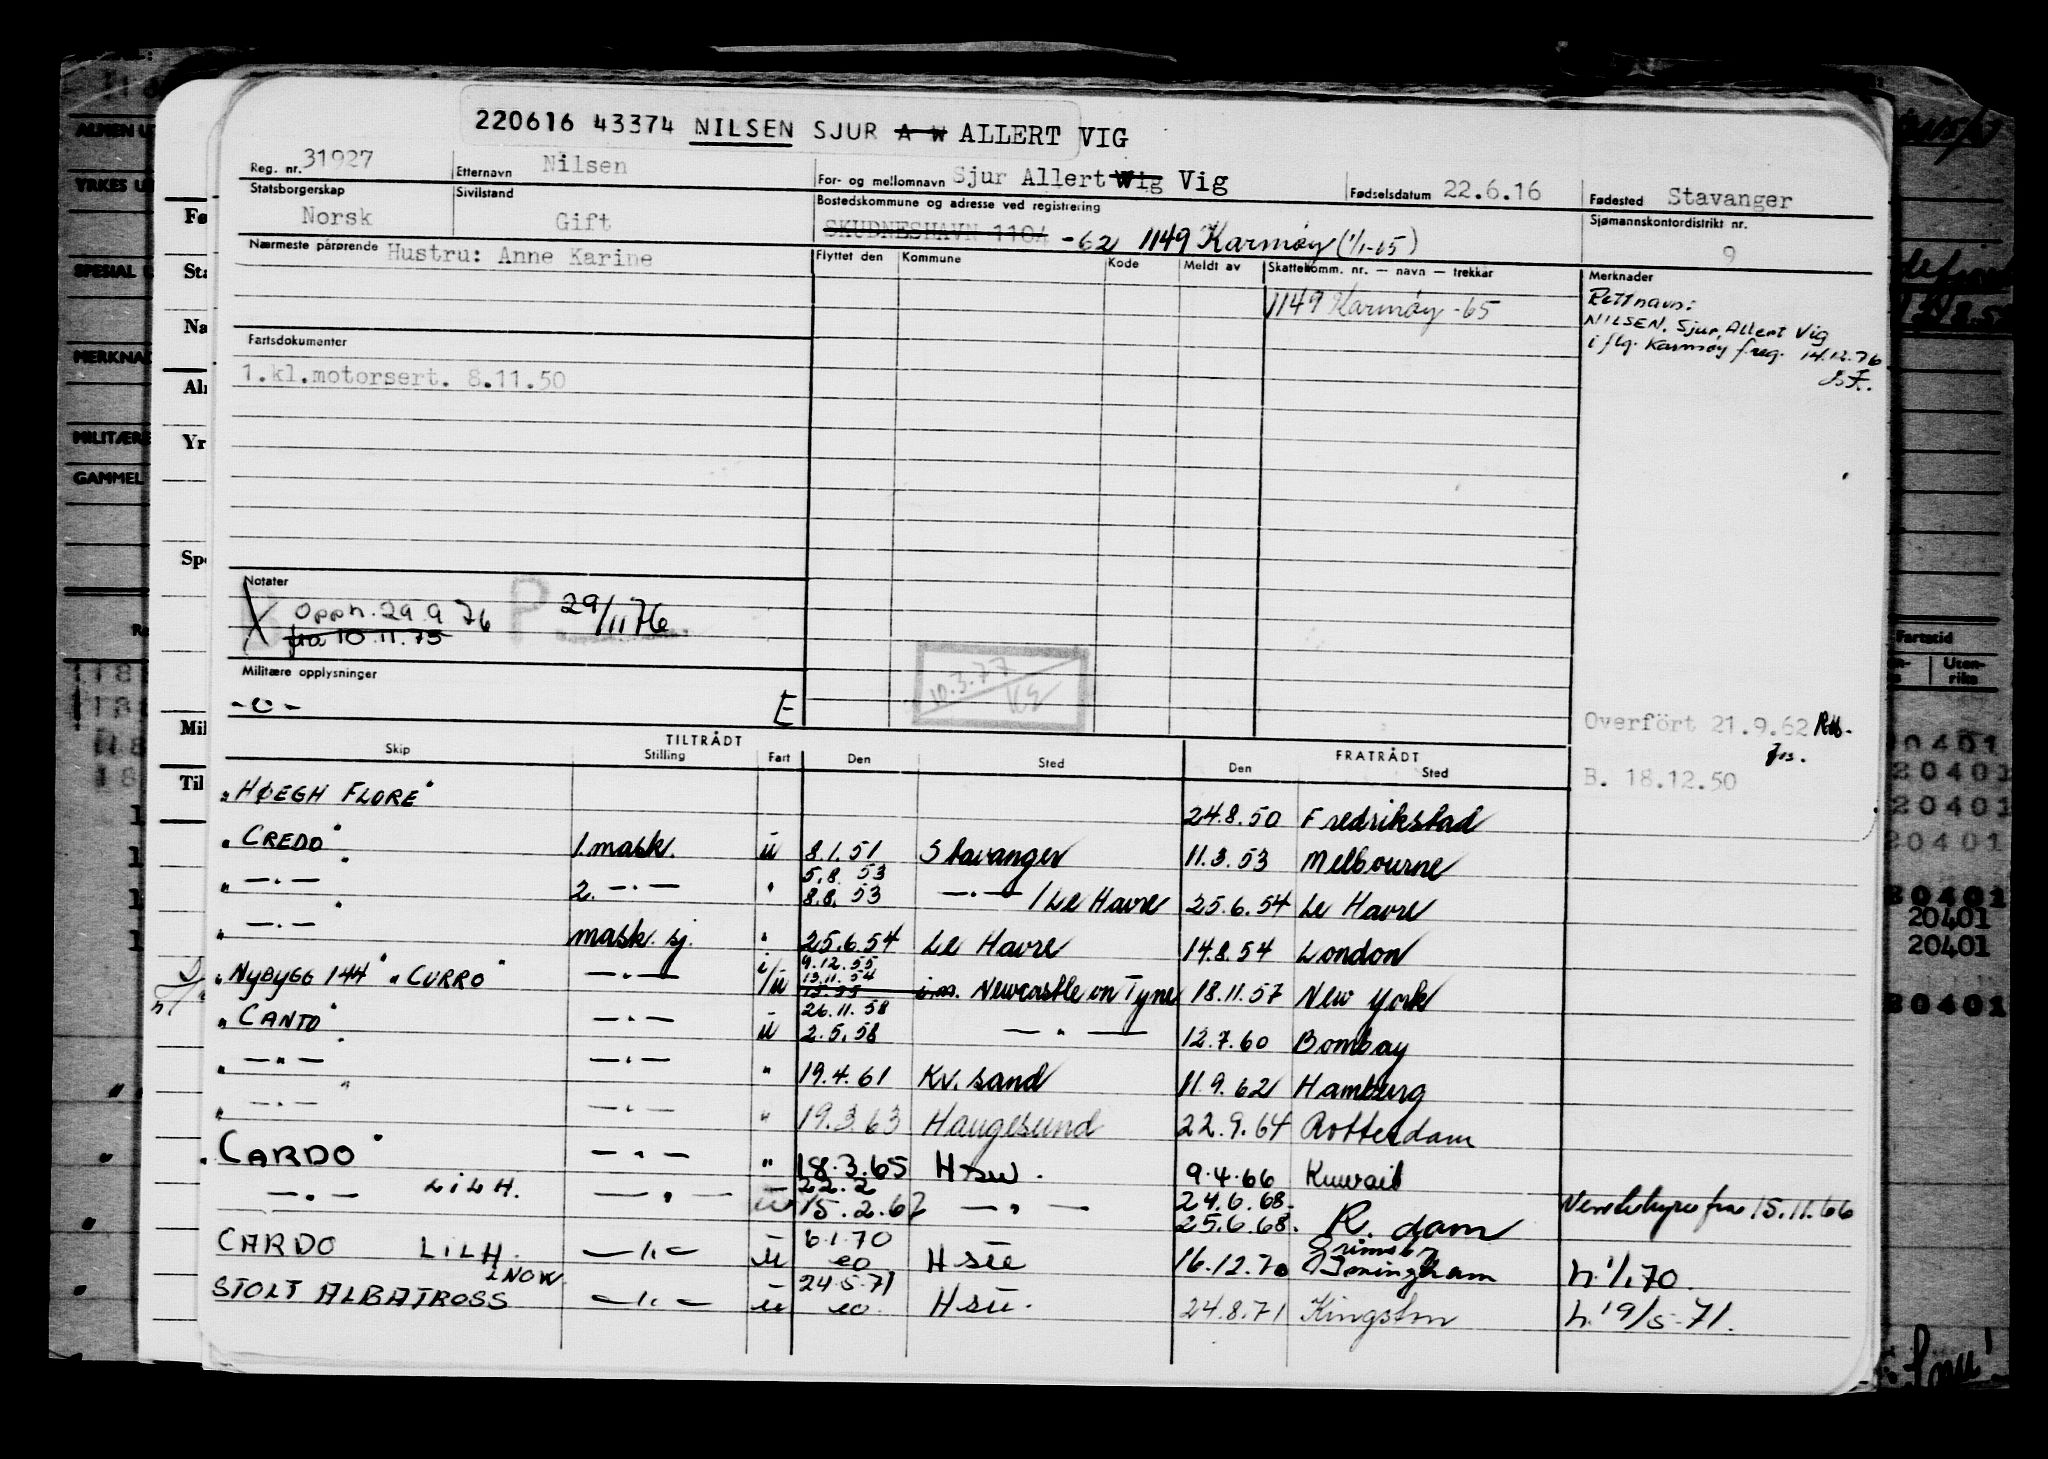 220616 43374 NILSEN SJUR A W ALLERT VIG
Reg. nr. 31927 Etternavn Nilsen For- og mellomnavn Sjur Allert Wig Vig Fødselsdatum 22.6.16 Fødested Stavanger
Statsborgerskap Norsk Sivilstand Gift Bostedskommune og adresse ved registrering SKUDNESHAVN 110A -62 1149 Karmøy (1/1-65) Sjømannskontordistrikt nr. 9
Nærmeste pårørende Hustru: Anne Karine
Flyttet den Kommune Kode Meldt av Skattekomm. nr. — navn — trekkar Merknader
1149 Karmøy -65
Rett navn:
NILSEN, Sjur Allert Vig
i flg. Karmøy f.reg. 14.12.76
Fartsdokumenter
1.kl.motorsert. 8.11.50
Notater
Opph. 29.9.76 P 29/11 76
fra 10.11.75
10.3.77
Militære opplysninger
-o- E
Overfört 21.9.62
B. 18.12.50
TILTRÅDT FRATRÅDT
Skip Stilling Fart Den Sted Den Sted
"HØEGH FLORE" 24.8.50 Fredrikstad
"CREDO" 1.mask. u 8.1.51 Stavanger 11.3.53 Melbourne
5.8.53
" —"— " 2. —"— " 8.8.53 —"— / Le Havre 25.6.54 Le Havre
" —"— " mask. sj. " 25.6.54 Le Havre 14.8.54 London
9.12.55
"NYBYGG 144" "CURRO" —"— i/u 13.11.54 i.m. Newcastle on Tyne 18.11.57 New York
26.11.58
"CANTO" —"— u 2.5.58 —"— 12.7.60 Bombay
" —"— " —"— " 19.4.61 Kr.sand 11.9.62 Hamburg
" —"— " —"— " 19.3.63 Haugesund 22.9.64 Rotterdam
"CARDO" —"— " 18.3.65 Hsu. 9.4.66 Kuwait
22.2 24.6.68.
—"— LILH. —"— u 15.2.67 —"— 25.6.68. R.dam fra 15.11.66
6.1.70 Grimsby
CARDO LILH. —"— u eo Hsu 16.12.70 Imingham h. 1/1.70.
LNOW 24.5.71
STOLT ALBATROSS —"— u eo. Hsu. 24.8.71 Kingston h. 19/5-71.
Fø
Sta
Na
Al
Yr
Spe
Mil
Til
YRKES U
SPESIAL
MERKNA
MILITÆRE
GAMMEL
Fartstid
Uten-
riks
20401
20401
20401
20401
20401
20401
20401
20401